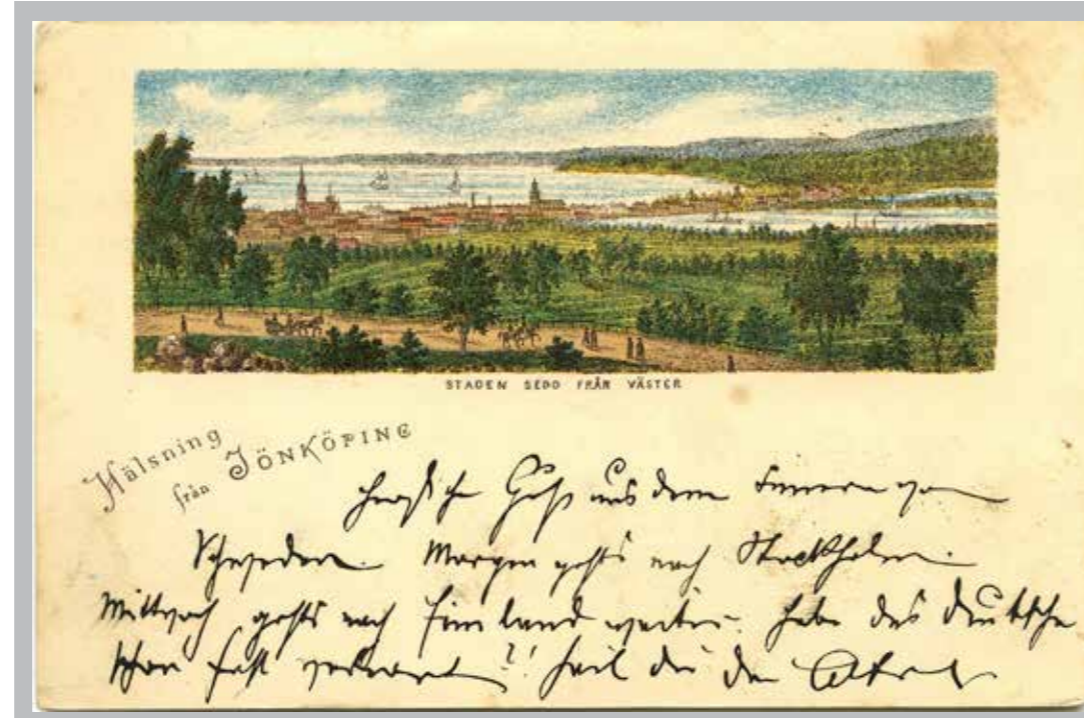 STADEN SEDD FRÅN VÄSTER
Hälsning
från JÖNKÖPING
Gruß aus dem Innern von
Schweden. Morgen gehts nach Stockholm.
Mittwoch gehts nach Finnland weiter. Habe das Deutsche
schon fast verlernt?! Heil dir